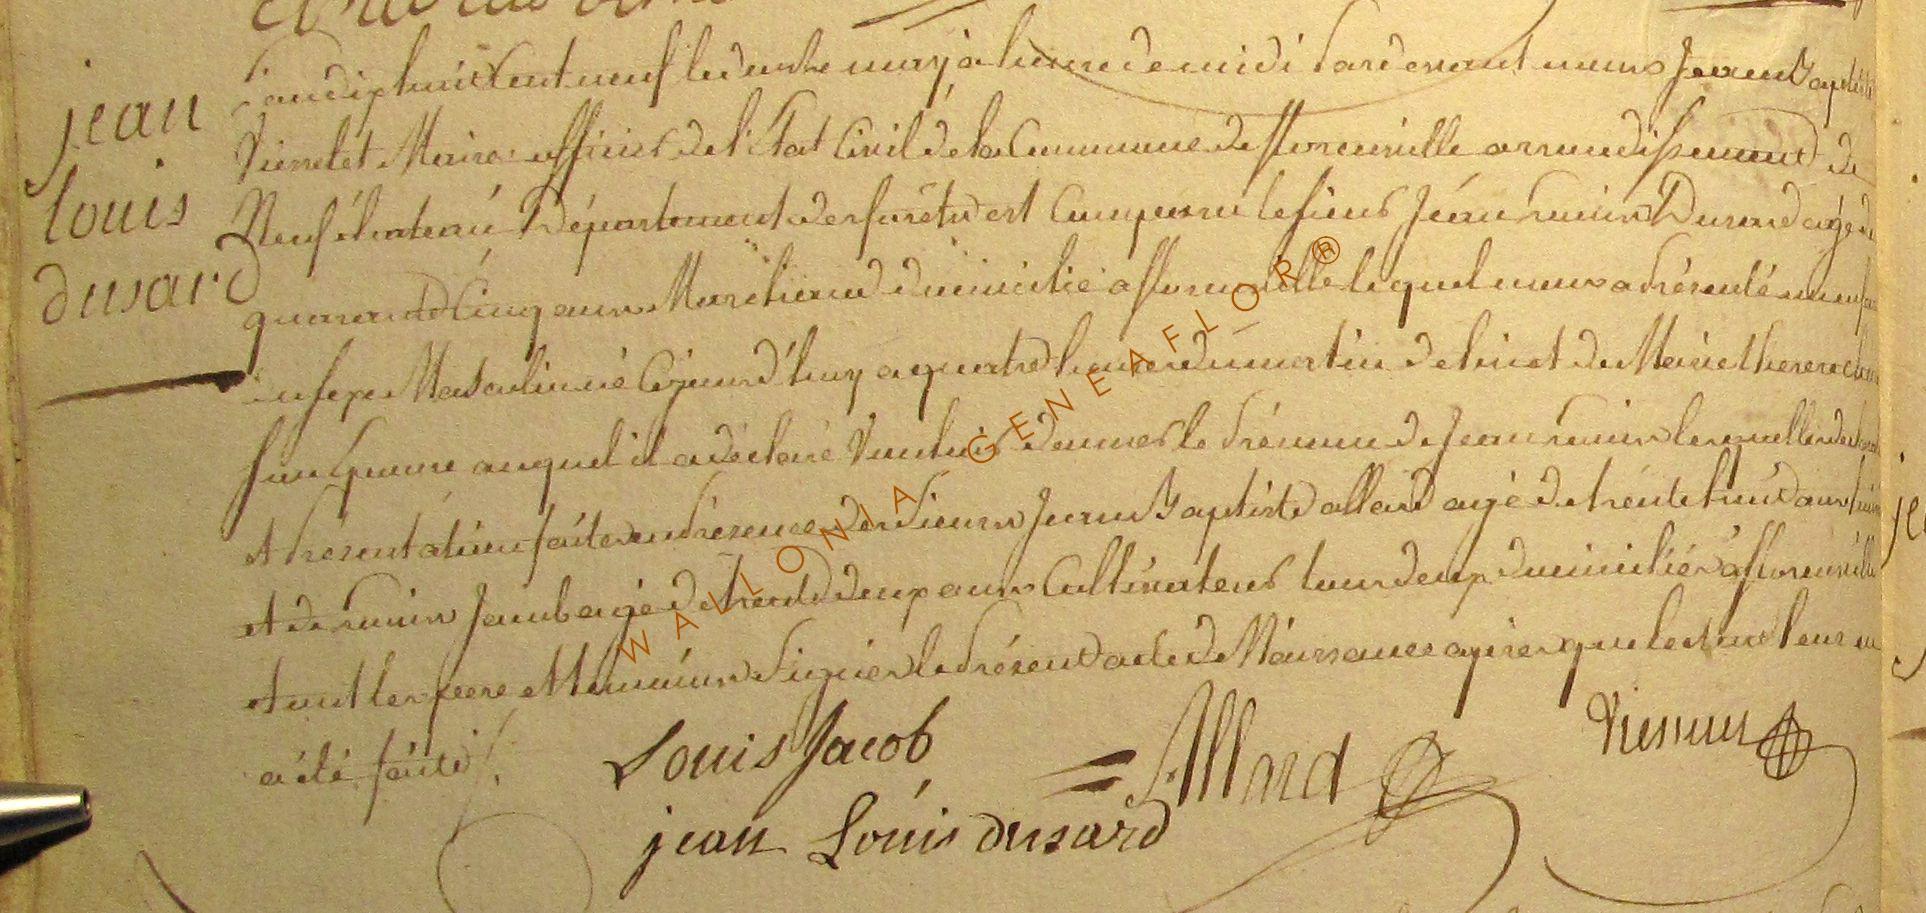 jean
louis
dusard
L'an dix huit cent neuf le du may a heure de midi pardevant nous Jean Baptiste
Maire officier de l'Etat Civil de la Commune de florenville arrondissement de
Neufchateau Département des forêts est Comparu le sieur Jean Louis Dusard agé de
quarante Cinq ans Marchand domicilié a florenville lequel nous a présenté un enfant
du sexe Masculin né Cejourd'huy a quatre heures du matin de lui et de Marie therese
son Epouse auquel il a déclaré Vouloir donner le prénom de Jean Louis lesquelles
et présentation faites en présence des Sieurs Jean Baptiste allard agé de trente huit ans
et de Louis Jacob agé de trente deux ans Cultivateurs tous deux domiciliés a florenville
et ont les pere et témoins Signés le présent acte de Naissance apres que lecture leur en
a été faite
Louis Jacob
Allard
jean Louis dusard
WALLONIA GENEAFLOR®